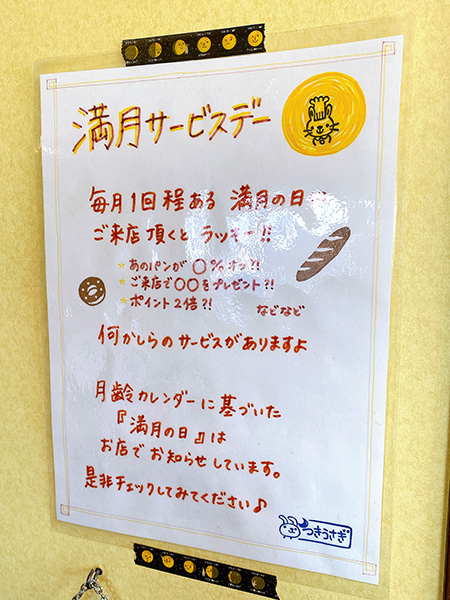 満月サービスデー
毎月1回程ある 満月の日に
ご来店頂くと ラッキー!!
★ あのパンが ○%オフ?!
★ ご来店で○○をプレゼント?!
★ ポイント2倍?!
などなど
何かしらのサービスがありますよ
月齢カレンダーに基づいた
『満月の日』は
お店でお知らせしています。
是非チェックしてみてください♪
つきうさぎ